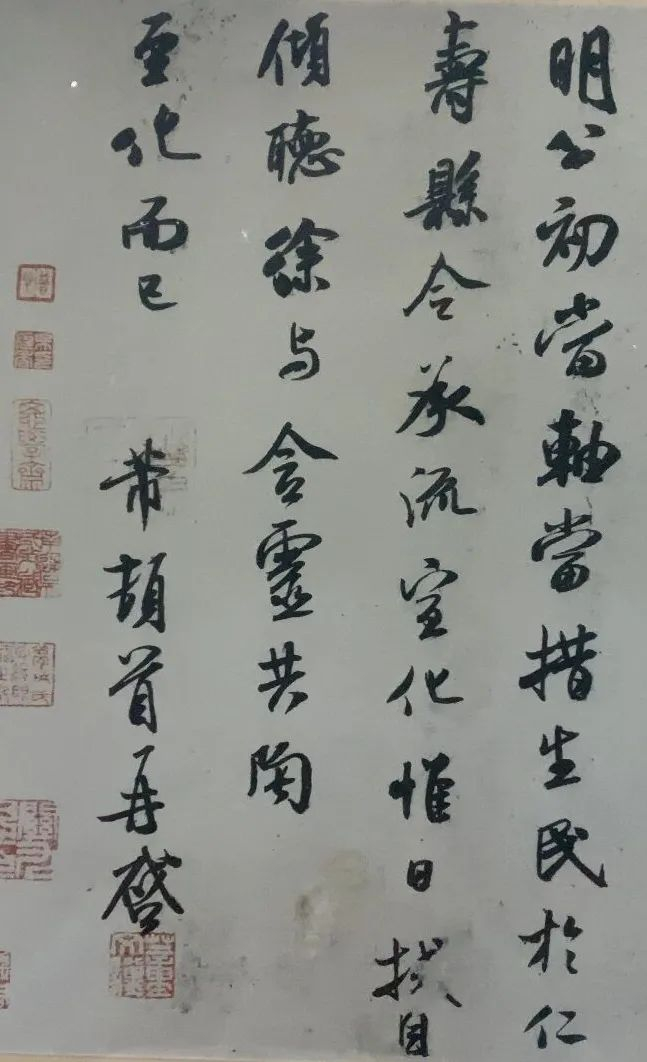 明公初當軸當措生民於仁
壽縣令承流宣化惟日拭目
傾聽徐與含靈共陶
至化而已　芾頓首再啓